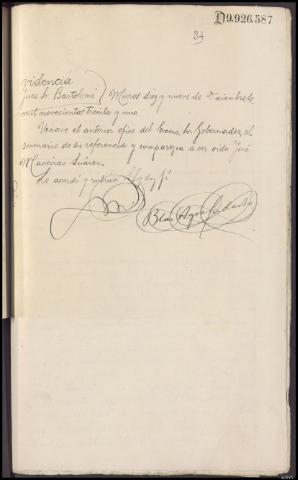 D9.926.587
34
videncia
Juez Sr. Bartolomé } Muros diez y nueve de Diciembre de
mil novecientos treinta y uno
Unase el anterior oficio del Excmo Sr. Gobernador, al
sumario de su referencia y comparezca a ser oido José
Mª Maceiras Suárez.
Lo acordó y rubrica S.Sª doy fé
Blas